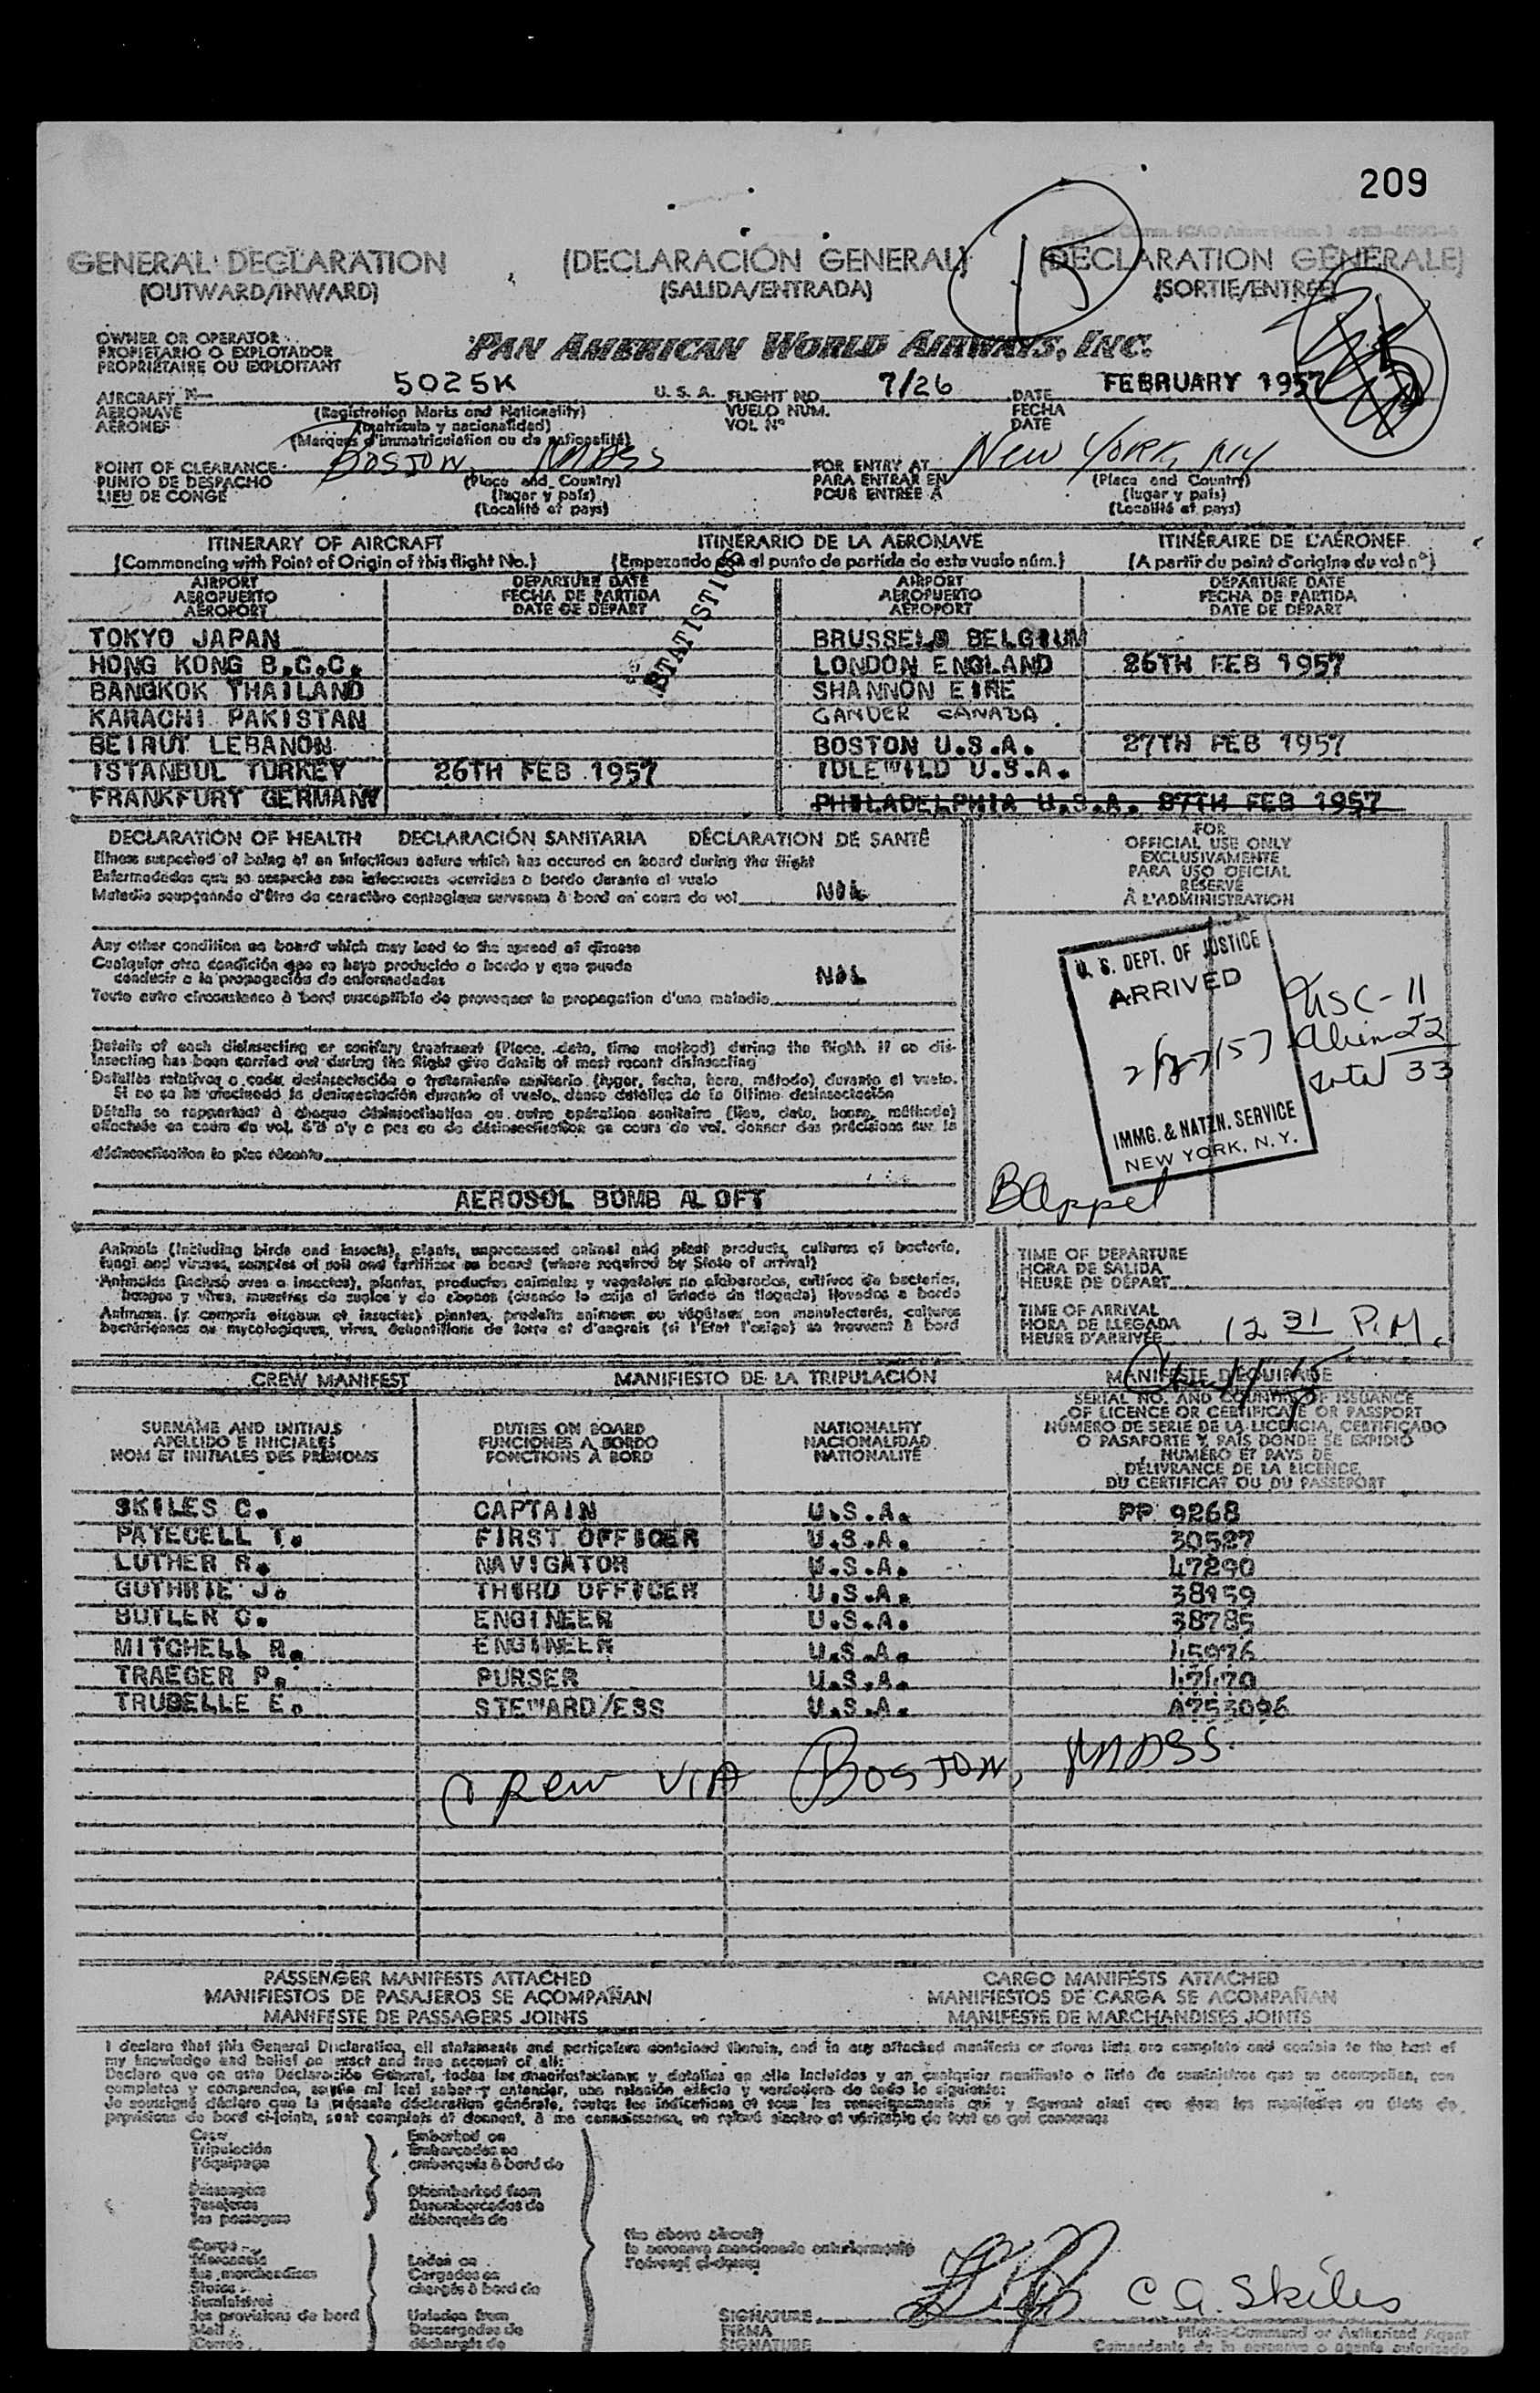 209
GENERAL DECLARATION (DECLARACIÓN GENERAL) (DÉCLARATION GÉNÉRALE)
(OUTWARD/INWARD) (SALIDA/ENTRADA) (SORTIE/ENTRÉE)
15
OWNER OR OPERATOR
PROPIETARIO O EXPLOTADOR
PROPRIÉTAIRE OU EXPLOITANT
PAN AMERICAN WORLD AIRWAYS, INC.
AIRCRAFT N- 5025K U. S. A. FLIGHT NO. 7/26 DATE FEBRUARY 1957
AERONAVE (Registration Marks and Nationality) VUELO NUM. FECHA
AÉRONEF (matrícula y nacionalidad) VOL Nº DATE
(Marques d'immatriculation ou de nationalité)
POINT OF CLEARANCE BOSTON, MASS FOR ENTRY AT NEW YORK, NY
PUNTO DE DESPACHO (Place and Country) PARA ENTRAR EN (Place and Country)
LIEU DE CONGÉ (lugar y país) POUR ENTRÉE À (lugar y país)
(Localité et pays) (Localité et pays)
ITINERARY OF AIRCRAFT ITINERARIO DE LA AERONAVE ITINÉRAIRE DE L'AÉRONEF
(Commencing with Point of Origin of this flight No.) (Empezando con el punto de partida de este vuelo núm.) (A partir du point d'origine du vol nº)
AIRPORT DEPARTURE DATE AIRPORT DEPARTURE DATE
AEROPUERTO FECHA DE PARTIDA AEROPUERTO FECHA DE PARTIDA
AÉROPORT DATE DE DÉPART AÉROPORT DATE DE DÉPART
STATISTICS
TOKYO JAPAN BRUSSELS BELGIUM
HONG KONG B.C.C. LONDON ENGLAND 26TH FEB 1957
BANGKOK THAILAND SHANNON EIRE
KARACHI PAKISTAN GANDER CANADA
BEIRUT LEBANON BOSTON U.S.A. 27TH FEB 1957
ISTANBUL TURKEY 26TH FEB 1957 IDLEWILD U.S.A.
FRANKFURT GERMANY PHILADELPHIA U.S.A. 27TH FEB 1957
DECLARATION OF HEALTH DECLARACIÓN SANITARIA DÉCLARATION DE SANTÉ
Illness suspected of being of an infectious nature which has occured on board during the flight
Enfermedades que se sospecha son infecciosas ocurridas a bordo durante el vuelo
Maladie soupçonnée d'être de caractère contagieux survenue à bord en cours de vol NIL
Any other condition on board which may lead to the spread of disease
Cualquier otra condición que se haya producido a bordo y que pueda
conducir a la propagación de enfermedades NIL
Toute autre circonstance à bord susceptible de provoquer la propagation d'une maladie
Details of each disinsecting or sanitary treatment (Place, date, time method) during the flight. If no dis-
insecting has been carried out during the flight give details of most recent disinsecting
Detalles relativos a cada desinsectación o tratamiento sanitario (lugar, fecha, hora, método) durante el vuelo.
Si no se ha efectuado la desinsectación durante el vuelo, dense detalles de la última desinsectación
Détails se rapportant à chaque désinsectisation ou autre opération sanitaire (lieu, date, heure, méthode)
effectuée en cours de vol. S'il n'y a pas eu de désinsectisation en cours de vol. donner des précisions sur la
désinsectisation la plus récente
AEROSOL BOMB ALOFT
FOR
OFFICIAL USE ONLY
EXCLUSIVAMENTE
PARA USO OFICIAL
RÉSERVÉ
À L'ADMINISTRATION
U. S. DEPT. OF JUSTICE
ARRIVED
2/27/57
IMMG. & NATZN. SERVICE
NEW YORK, N.Y.
USC-11
Alien 22
total 33
B Appel
Animals (including birds and insects), plants, unprocessed animal and plant products, cultures of bacteria,
fungi and viruses, samples of soil and fertilizer on board (where required by State of arrival)
Animales (incluso aves o insectos), plantas, productos animales y vegetales no elaborados, cultivos de bacterias,
hongos y virus, muestras de suelos y de abonos (cuando lo exija el Estado de llegada) llevados a bordo
Animaux (y compris oiseaux et insectes) plantes, produits animaux ou végétaux non manufacturés, cultures
bactériennes ou mycologiques, virus, échantillons de terre et d'engrais (si l'Etat l'exige) se trouvant à bord
TIME OF DEPARTURE
HORA DE SALIDA
HEURE DE DÉPART
TIME OF ARRIVAL
HORA DE LLEGADA
HEURE D'ARRIVÉE 12 31 P.M.
CREW MANIFEST MANIFIESTO DE LA TRIPULACIÓN MANIFESTE D'ÉQUIPAGE
SURNAME AND INITIALS DUTIES ON BOARD NATIONALITY SERIAL NO. AND COUNTRY OF ISSUANCE
APELLIDO E INICIALES FUNCIONES A BORDO NACIONALIDAD OF LICENCE OR CERTIFICATE OR PASSPORT
NOM ET INITIALES DES PRÉNOMS FONCTIONS À BORD NATIONALITÉ NÚMERO DE SERIE DE LA LICENCIA, CERTIFICADO
O PASAPORTE Y PAÍS DONDE SE EXPIDIÓ
NUMÉRO ET PAYS DE
DÉLIVRANCE DE LA LICENCE,
DU CERTIFICAT OU DU PASSEPORT
SKILES C. CAPTAIN U.S.A. PP 9268
PATECELL T. FIRST OFFICER U.S.A. 30527
LUTHER R. NAVIGATOR U.S.A. 47290
GUTHRIE J. THIRD OFFICER U.S.A. 38159
BUTLER C. ENGINEER U.S.A. 38785
MITCHELL R. ENGINEER U.S.A. 45976
TRAEGER P. PURSER U.S.A. 47470
TRUBELLE E. STEWARD/ESS U.S.A. A753096
CREW VIA BOSTON, MASS.
PASSENGER MANIFESTS ATTACHED CARGO MANIFESTS ATTACHED
MANIFIESTOS DE PASAJEROS SE ACOMPAÑAN MANIFIESTOS DE CARGA SE ACOMPAÑAN
MANIFESTE DE PASSAGERS JOINTS MANIFESTE DE MARCHANDISES JOINTS
I declare that this General Declaration, all statements and particulars contained therein, and in any attached manifests or stores lists, are complete and contain to the best of
my knowledge and belief an exact and true account of all:
Declaro que en esta Declaración General, todas las manifestaciones y detalles en ella incluidos y en cualquier manifiesto o lista de suministros que se acompañan, son
completos y comprenden, según mi leal saber y entender, una relación exacta y verdadera de todo lo siguiente:
Je soussigné déclare que la présente déclaration générale, toutes les indications et tous les renseignements qui y figurent ainsi que dans les manifestes ou états de
provisions de bord ci-joints, sont complets et donnent, à ma connaissance, un relevé sincère et véritable de tout ce qui concerne:
Crew Embarked on
Tripulación Embarcados en
l'équipage embarqués à bord de
Passengers Disembarked from
Pasajeros Desembarcados de
les passagers débarqués de
Cargo
Mercancía Laden on
les marchandises Cargados en
Stores chargés à bord de
Suministros
les provisions de bord Unladen from
Mail Descargados de
Correo déchargés de
the above aircraft
la aeronave mencionada anteriormente
l'aéronef ci-dessus
SIGNATURE C A. Skiles
FIRMA Pilot-in-Command or Authorized Agent
SIGNATURE Comandante de la aeronave o agente autorizado